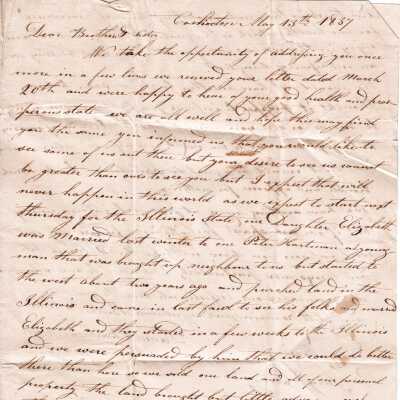 May 13th 1837
Dear Brother &
We take the opportunity of addressing you once
more in a few lines we received your letter dated March
20th and were happy to hear of your good health and pros-
perous state we are all well and hope this may find
you the same you informed us that you would like to
see some of us out there but your desire to see us cannot
be greater than ours to see you but I expect that will
never happen in this world as we expect to start next
thursday for the Illinois State our Daughter Elizabeth
was Married last winter to one Peter Hartman a young
man that was brought up neighbour to us but started to
the west about two years ago and purched land in the
Illinois and came in last faul to see his folks and married
Elizabeth and they started in a few weeks to the Illinois
and we were persuaded by him that we could do better
there than here so we sold our land and all of our personal
property the land brought but little